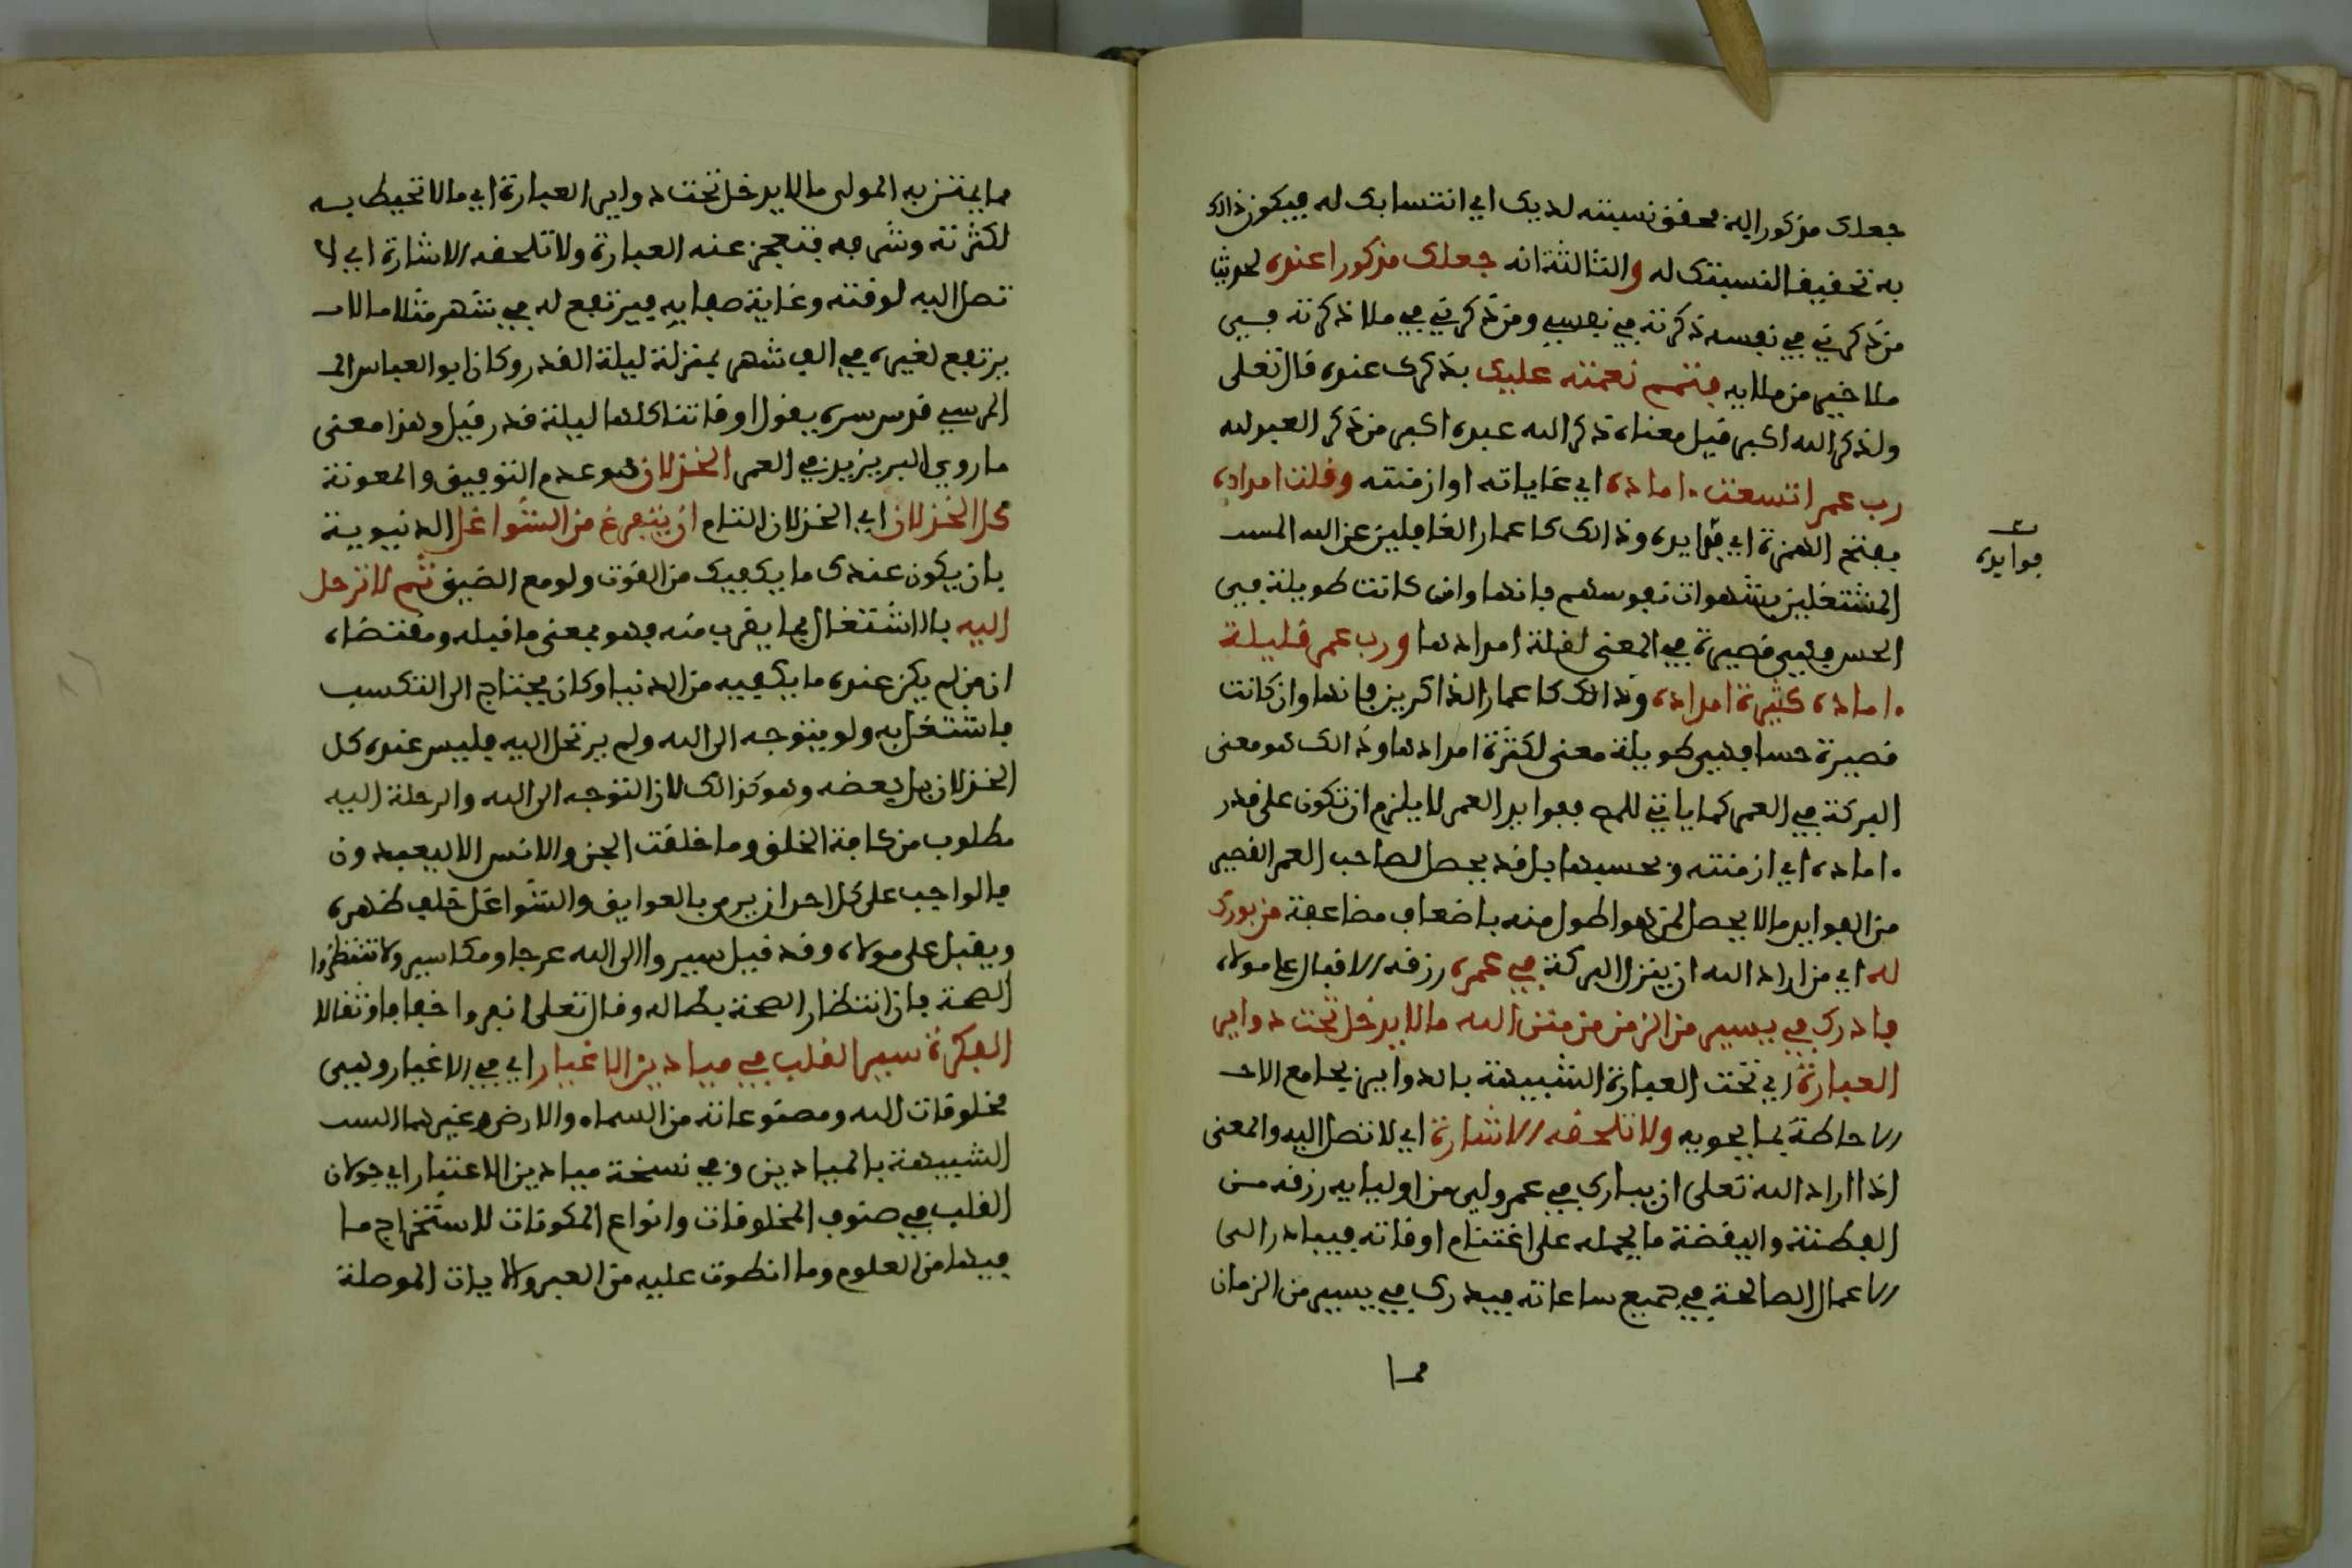 جعلك مذكورا به فحقق نسبته لديك اي انتسابك له فيكون ذالك
به تحقيق النسبتك له والثالثة انه جعلك مذكورا عنده لحديث
من ذكرني في نفسه ذكرته في نفسي ومن ذكرني في ملا ذكرته في
ملا خير من ملايه فتمم نعمته عليك بذكرك عنده قال تعلى
ولذكر الله اكبر قيل معناه ذكر الله عبده اكبر من ذكر العبد لله
رب عمر اتسعت ءاماده اي غاياته او ازمنته وقلت امداده
بفتح الهمزة اي فوايده وذالك كاعمار الغافلين عن الله المسـ
المشتغلين بشهوات نفوسهم فانها وان كانت طويلة في
الحس فهي قصيرة في المعنى لقلة امدادها ورب عمر قليلة
ءاماده كثيرة امداده وذالك كاعمار الذاكرين فانها وان كانت
قصيرة حسا فهي طويلة معنى لكثرة امدادها وذالك هو معنى
البركة في العمر كما ياتي للمصـ ففوايد العمر لا يلزم ان تكون على قدر
ءاماده اي ازمنته وبحسبها بل قد يحصل لصاحب العمر القصير
من الفوايد ما لا يحصل لمن هو اطول منه باضعاف مضاعفة من بورك
له اي من اراد الله ان ينزل البركة في عمره رزقه الاقبال على مولاه
فادرك في يسير من الزمن من منن الله ما لا يدخل تحت دواير
العبارة اي تحت العبارة الشبيهة بالدواير بجامع الاحـ
الاحاطة بما يحويه ولا تلحقه الاشارة اي لا تصل اليه والمعنى
اذا اراد الله تعلى ان يبارك في عمر ولي من اوليايه رزقه من
الفطنة واليقضة ما يحمله على اغتنام اوقاته فيبادر الى
الاعمال الصالحة في جميع ساعاته فيدرك في يسير من الزمان
مما
فوايده
مما يمتن به المولى ما لا يدخل تحت دواير العبارة اي ما لا تحيط به
لكثرته وشرفه فتعجز عنه العبارة ولا تلحقه الاشارة اي لا
تصل اليه لوقته وغاية صفايه فيرتفع له في شهر مثلا ما لا
يرتفع لغيره في الف شهر بمنزلة ليلة القدر وكان ابو العباس المـ
المرسي قدس سره يقول اوقاتنا كلها ليلة قدر قيل وهذا معنى
ما روي البر يزيد في العمر الخذلان هو عدم التوفيق والمعونة
كل الخذلان اي الخذلان التام ان يتفرغ من الشواغل الدنيوية
بان يكون عندك ما يكفيك من القوت ولو مع الضيق ثم لا ترحل
اليه بالاشتغال بما يقرب منه فهو بمعنى ما قبله ومقتضاه
ان من لم يكن عنده ما يكفيه من الدنيا وكان يحتاج الى التكسب
فاشتغل به ولو يتوجه الى الله ولم يرتحل اليه فليس عنده كل
الخذلان بل بعضه وهو كذالك لان التوجه الى الله والرحلة اليه
مطلوب من كافة الخلق وما خلقت الجن والانس الا ليعبدون
فالواجب على كل احد ان يرمي بالعوايق والشواغل خلف ظهره
ويقبل على مولاه وقد قيل سيروا الى الله عرجا ومكاسير ولا تنتظروا
الصحة فان انتظار الصحة بطاله وقال تعلى انفروا خفافا وثقالا
الفكرة سير القلب في ميادين الاغيار اي في الاغيار وهي
مخلوقات الله ومصنوعاته من السماء والارض وغيرهما السـ
الشبيهة بالميادين وفي نسخة ميادين الاعتبار اي جولان
القلب في صنوف المخلوقات وانواع المكونات لاستخراج ما
فيها من العلوم وما انطوت عليه من العبر والايات الموصلة